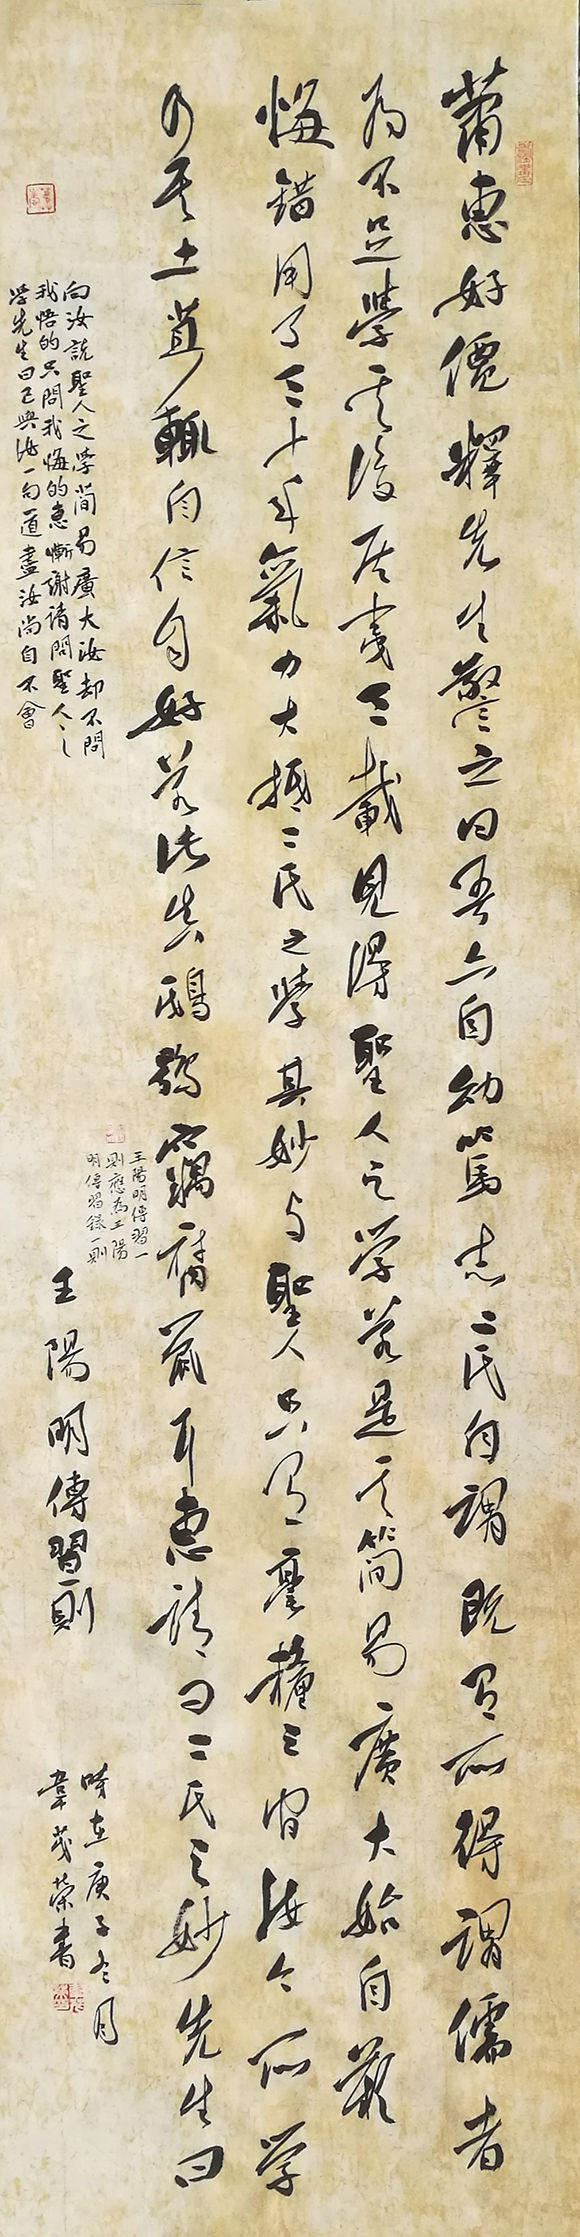 蕭惠好僊釋先生警之曰吾亦自幼篤志二氏自謂既有所得謂儒者
為不足學其後居夷三載見得聖人之學若是其簡易廣大始自歎
悔錯用了三十年氣力大抵二氏之學其妙与聖人只有一毫釐之間汝今所學
乃其土苴輒自信自好若此真鴟鴞竊腐鼠耳惠請問二氏之妙先生曰
向汝説聖人之學簡易廣大汝却不問
我悟的只問我悔的惠慚謝請問聖人之
學先生曰已與汝一句道盡汝尚自不會
王陽明傳習一
則應為王陽
明傳習錄一則
王陽明傳習一則
時在庚子冬月
韋茂榮書